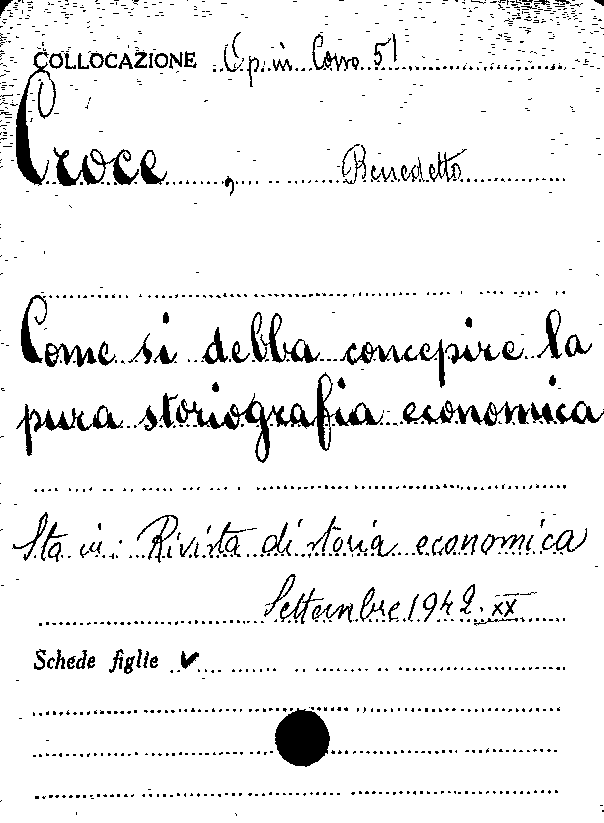 COLLOCAZIONE Op. in Cons 51
Croce, Benedetto
Come si debba concepire la
pura storiografia economica
Sta in: Rivista di storia economica
Settembre 1942. XX
Schede figlie ✓